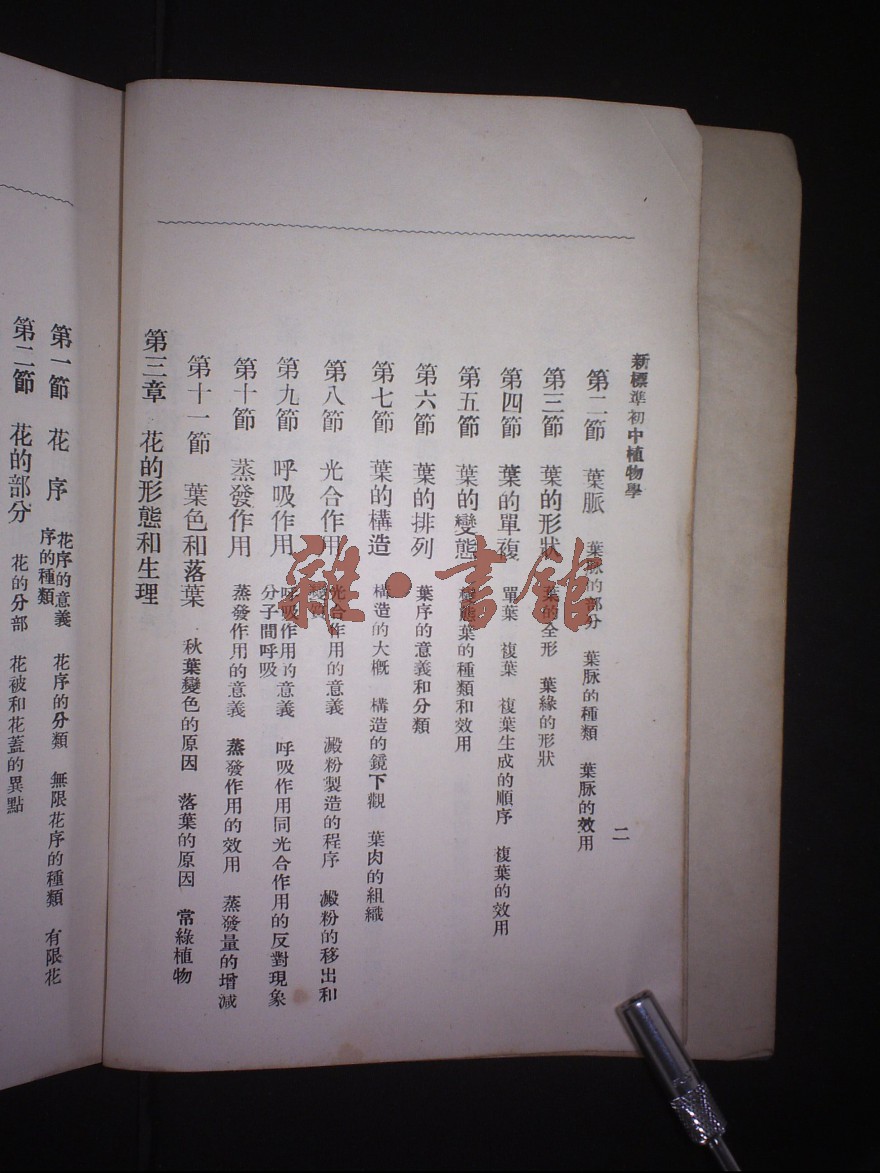 新標準初中植物學
二
第二節 葉脈 葉脉的部分 葉脉的種類 葉脉的效用
第三節 葉的形狀 葉的全形 葉緣的形狀
第四節 葉的單複 單葉 複葉 複葉生成的順序 複葉的效用
第五節 葉的變態 變態葉的種類和效用
第六節 葉的排列 葉序的意義和分類
第七節 葉的構造 構造的大概 構造的鏡下觀 葉肉的組織
第八節 光合作用 光合作用的意義 澱粉製造的程序 澱粉的移出和
變質
第九節 呼吸作用 呼吸作用的意義 呼吸作用同光合作用的反對現象
分子間呼吸
第十節 蒸發作用 蒸發作用的意義 蒸發作用的效用 蒸發量的增減
第十一節 葉色和落葉 秋葉變色的原因 落葉的原因 常綠植物
第三章 花的形態和生理
第一節 花序 花序的意義 花序的分類 無限花序的種類 有限花
序的種類
第二節 花的部分 花的分部 花被和花蓋的異點
雜·書館